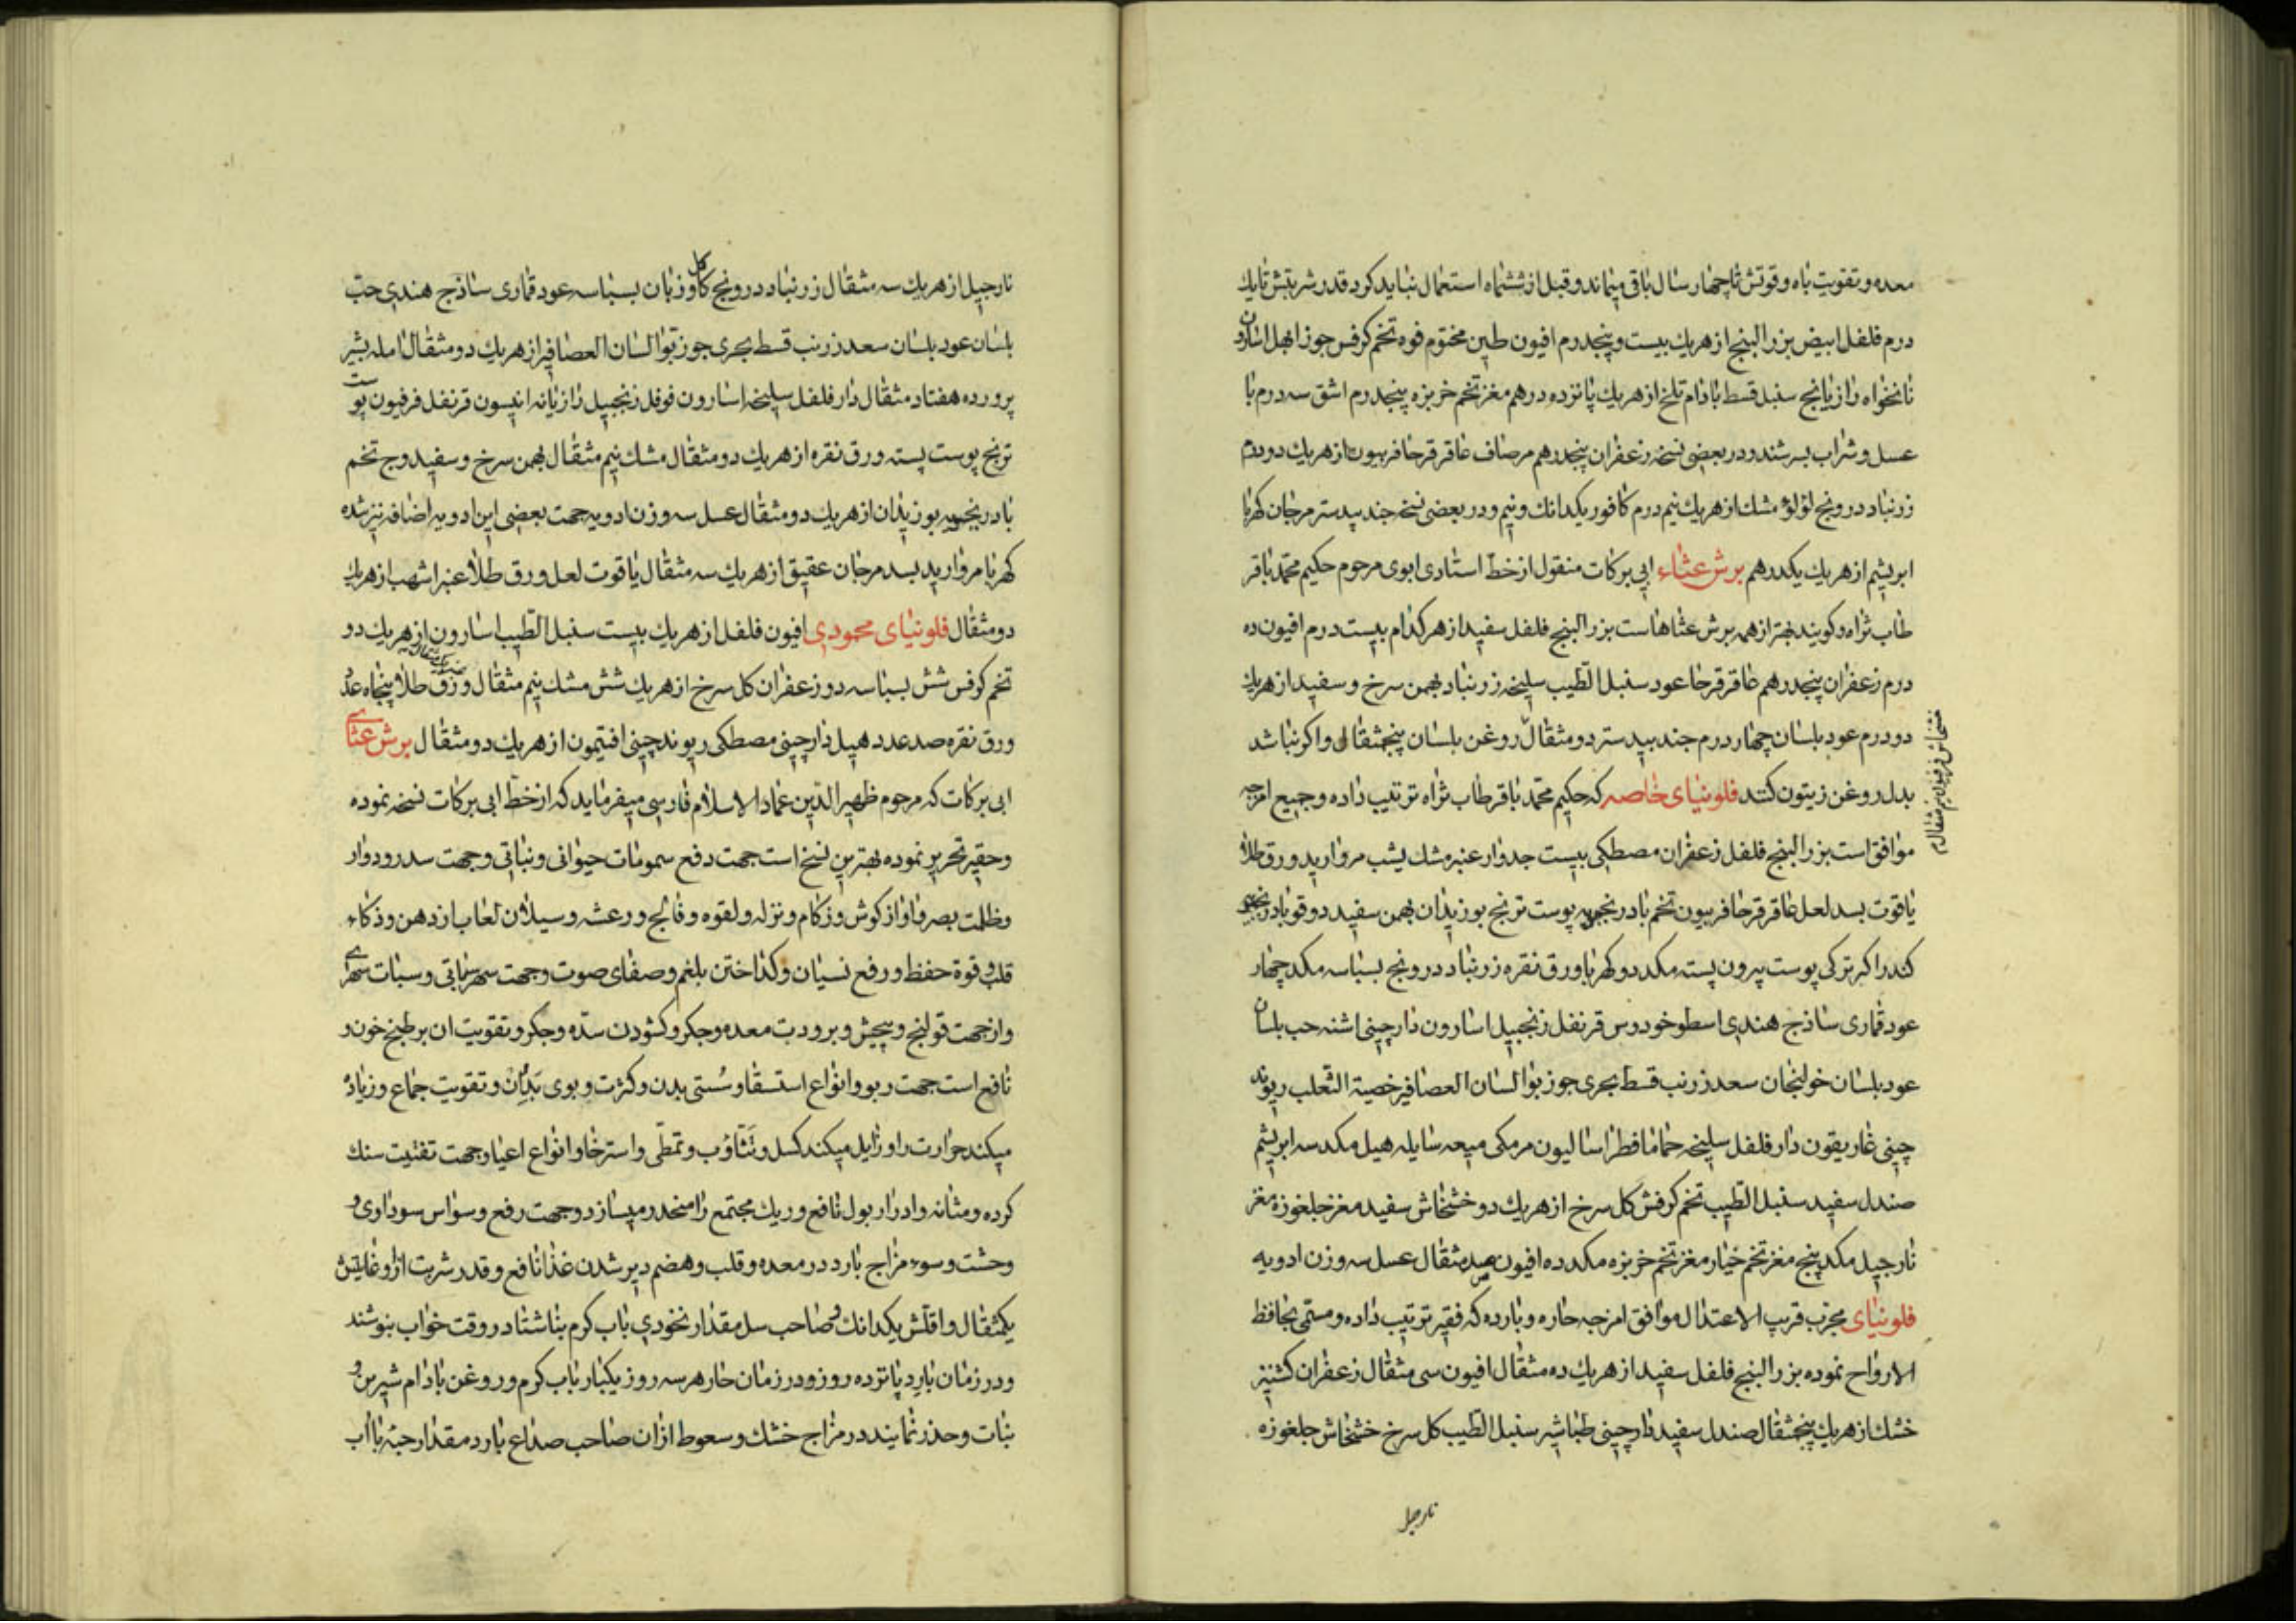 معده و تقویت باه و قوتش تا چهار سال باقی میماند و قبل از ششماه استعمال نباید کرد قدر شربتش تا یك
درم فلفل ابیض بزر البنج از هریك بیست و پنجدرم افیون طین مختوم فوه تخم کرفس جوز ابهل اسارون
نانخواه رازیانج سنبل قسط بادام تلخ از هریك پانزده درهم مغز تخم خربزه پنجدرم اشق سه درم با
عسل و شراب بسرشند و در بعضی نسخه زعفران پنجدرهم مرصاف عاقرقرحا فربیون از هریك دو درم
زرنباد درونج لؤلؤ مشك از هریك نیم درم کافور یکدانك و نیم و در بعضی نسخه جند بیدستر مرجان کهربا
ابریشم از هریك یکدرهم برش عثاء ابی برکات منقول از خط استادی ابوی مرحوم حکیم محمد باقر
طاب ثراه و کویند بهتر از همه برش عثاهاست بزر البنج فلفل سفید از هر کدام بیست درم افیون ده
درم زعفران پنجدرهم عاقرقرحا عود سنبل الطیب سلیخه زرنباد بهمن سرخ و سفید از هریك
دو درم عود بلسان چهار درم جند بیدستر دو مثقال روغن بلسان پنجمثقال و اکر نباشد
بدل روغن زیتون کنند فلونیای خاصه که حکیم محمد باقر طاب ثراه ترتیب داده و جمیع امزجه
موافق است بزر البنج فلفل زعفران مصطکی بیست جدوار عنبر مشك یشب مروارید ورق طلا
یاقوت بسد لعل عاقرقرحا فربیون تخم بادرنجبویه پوست ترنج بوزیدان بهمن سفید دوقو بادرنجبویه
کندر اکر ترکی پوست بیرون پسته مکد دو کهربا ورق نقره زرنباد درونج بسباسه مکد چهار
عود قماری ساذج هندی اسطوخودوس قرنفل زنجبیل اسارون دارچینی اشنه حب بلسان
عود بلسان خولنجان سعد زرنب قسط بحری جوز بوا لسان العصافیر خصیة الثعلب ریوند
چینی غاریقون دارفلفل سلیخه حماما فطراسالیون مرمکی میعه سایله هیل مکد سه ابریشم
صندل سفید سنبل الطیب تخم کرفش کل سرخ از هریك دو خشخاش سفید مغز جلغوزه مغز
نارجیل مکد پنج مغز تخم خیار مغز تخم خربزه مکد ده افیون مثقال عسل سه وزن ادویه
فلونیای مجرب قریب الاعتدال موافق امزجه حاره و بارده که فقیر ترتیب داده و مسمی بحافظ
الارواح نموده بزر البنج فلفل سفید از هریك ده مثقال افیون سی مثقال زعفران کشنیز
خشك از هریك پنجمثقال صندل سفید دارچینی طباشیر سنبل الطیب کل سرخ خشخاش جلغوزه
نارجیل
نارجیل از هریك سه مثقال زرنباد درونج کل کاوزبان بسباسه عود قماری ساذج هندی حب
بلسان عود بلسان سعد زرنب قسط بحری جوز بوا لسان العصافیر از هریك دو مثقال امله بشیر
پرورده هفتاد مثقال دارفلفل سلیخه اسارون فوفل زنجبیل رازیانه انیسون قرنفل فرفیون پوست
ترنج پوست پسته ورق نقره از هریك دو مثقال مشك نیم مثقال بهمن سرخ و سفید وج تخم
بادرنجبویه بوزیدان از هریك دو مثقال عسل سه وزن ادویه جهت بعضی این ادویه اضافه نیز شده
کهربا مروارید بسد مرجان عقیق از هریك سه مثقال یاقوت لعل ورق طلا عنبر اشهب از هریك
دو مثقال فلونیای محمودی افیون فلفل از هریك بیست سنبل الطیب اسارون از هریك دو
تخم کرفس شش بسباسه دو زعفران کل سرخ از هریك شش مشك نیم مثقال ورق طلا پنجاه عدد
ورق نقره صد عدد هیل دارچینی مصطکی ریوند چینی افتیمون از هریك دو مثقال برش عثای
ابی برکات که مرحوم ظهیر الدین عماد الاسلام فارسی میفرماید که از خط ابی برکات نسخه نموده
و حقیر تحریر نموده بهترین نسخ است جهت دفع سمومات حیوانی و نباتی و جهت سدر و دوار
و ظلمت بصر و اواز کوش و زکام و نزله و لقوه و فالج و رعشه و سیلان لعاب از دهن و ذکاء
قلب و قوة حفظ و رفع نسیان و کداختن بلغم و صفای صوت و جهت سهر سباتی و سبات سهری
و از جهت قولنج و پیچیش و برودت معده و جکر و کشودن سده و جکر و تقویت ان بر طبخ خون و
نافع است جهت ربو و انواع استسقا و سستی بدن و کثرت و بوی بد ان و تقویت جماع و زیاده
میکند حرارت را و زایل میکند کسل و تثاؤب و تمطی و استرخا و انواع اعیا و جهت تفتیت سنك
کرده و مثانه و ادرار بول نافع و ریك مجتمع را منحدر میسازد و جهت رفع وسواس سوداوی و
وحشت و سوء مزاج بارد در معده و قلب و هضم دیر شدن غذا نافع و قدر شربت از او غایتش
یکمثقال و اقلش یکدانك و صاحب سل مقدار نخودی باب کرم بناشتا در وقت خواب بنوشند
و در زمان بارد پانزده روز و در زمان حار هر سه روز یکبار باب کرم و روغن بادام شیرین و
نبات و حذر نمایند در مزاج خشك و سعوط ازان صاحب صداع بارد مقدار حبة با اب